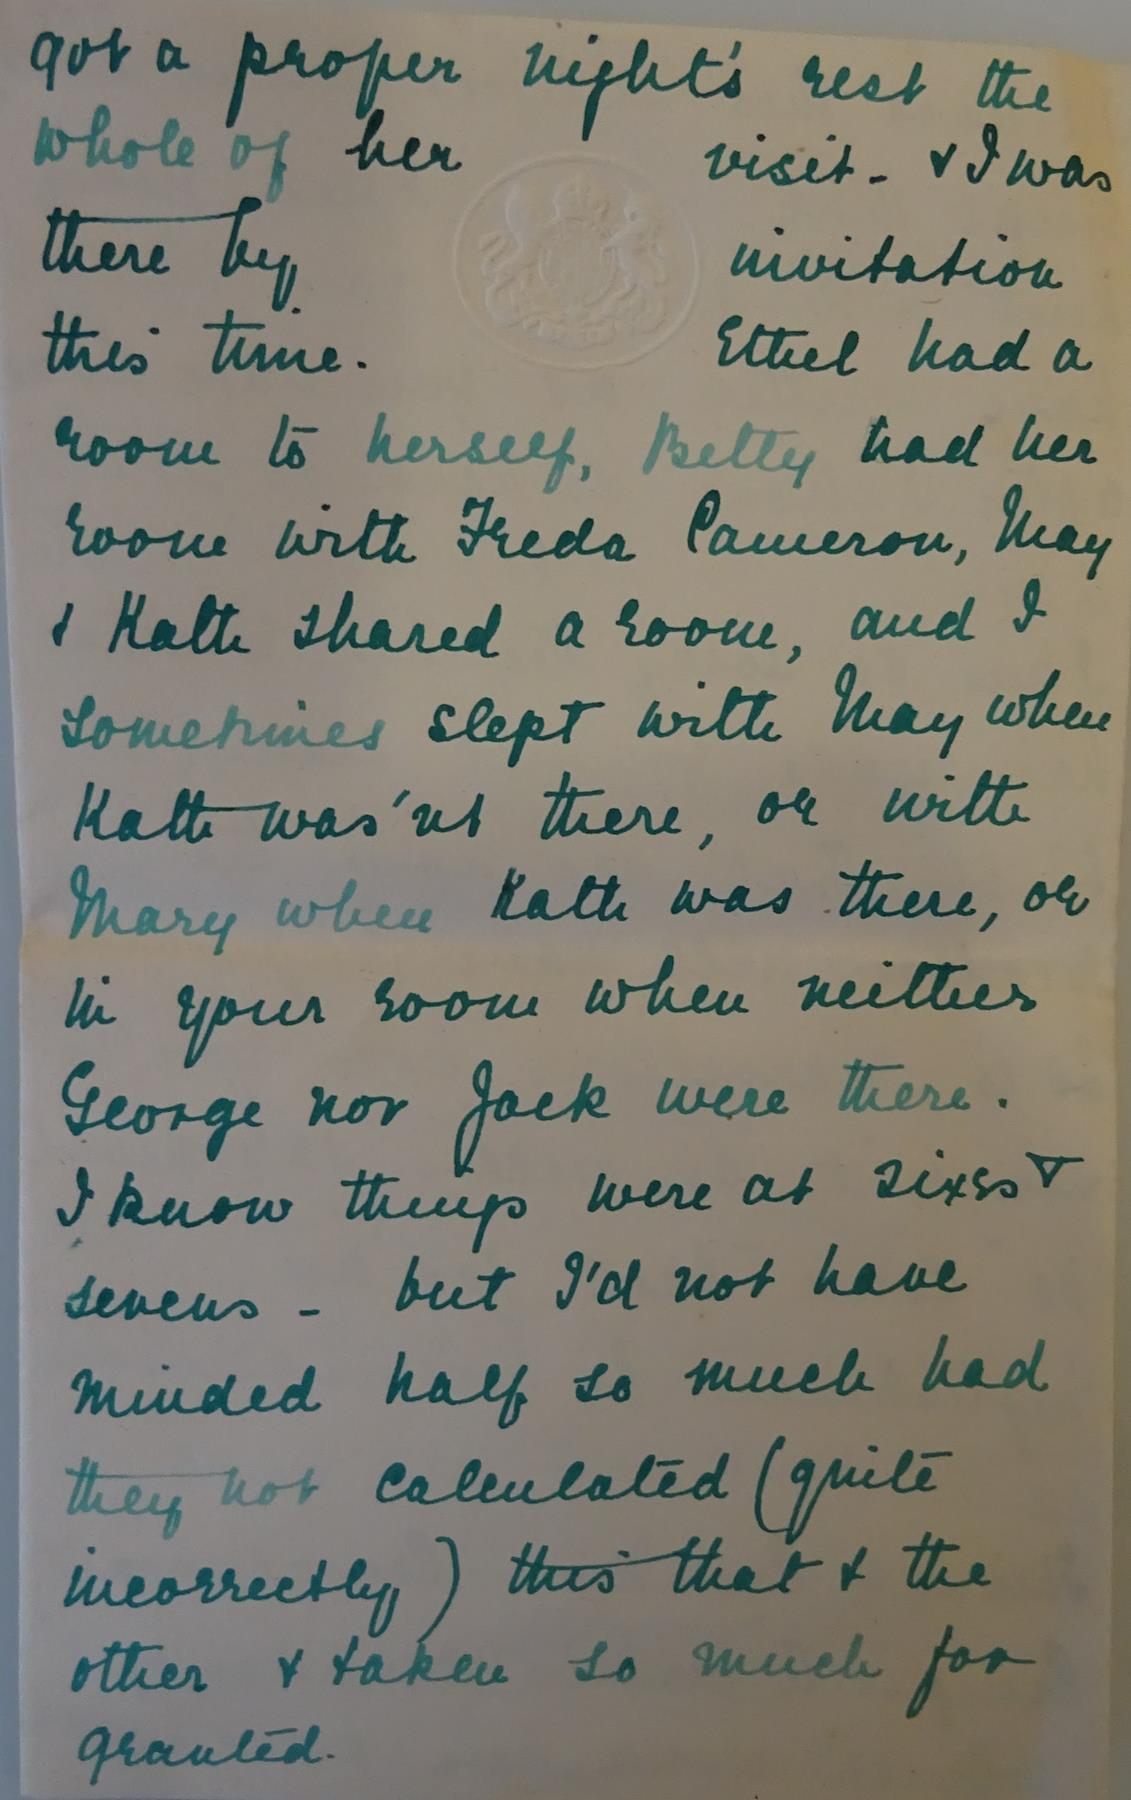 got a proper night's rest the
whole of her visit - & I was
there by invitation
this time. Ethel had a
room to herself, Betty had her
room with Freda Cameron, May
& Kath shared a room, and I
sometimes slept with May when
Kath was'nt there, or with
Mary when Kath was there, or
in your room when neither
George nor Jack were there.
I know things were at sixes &
sevens - but I'd not have
minded half so much had
they not calculated (quite
incorrectly) this that & the
other & taken so much for
granted.